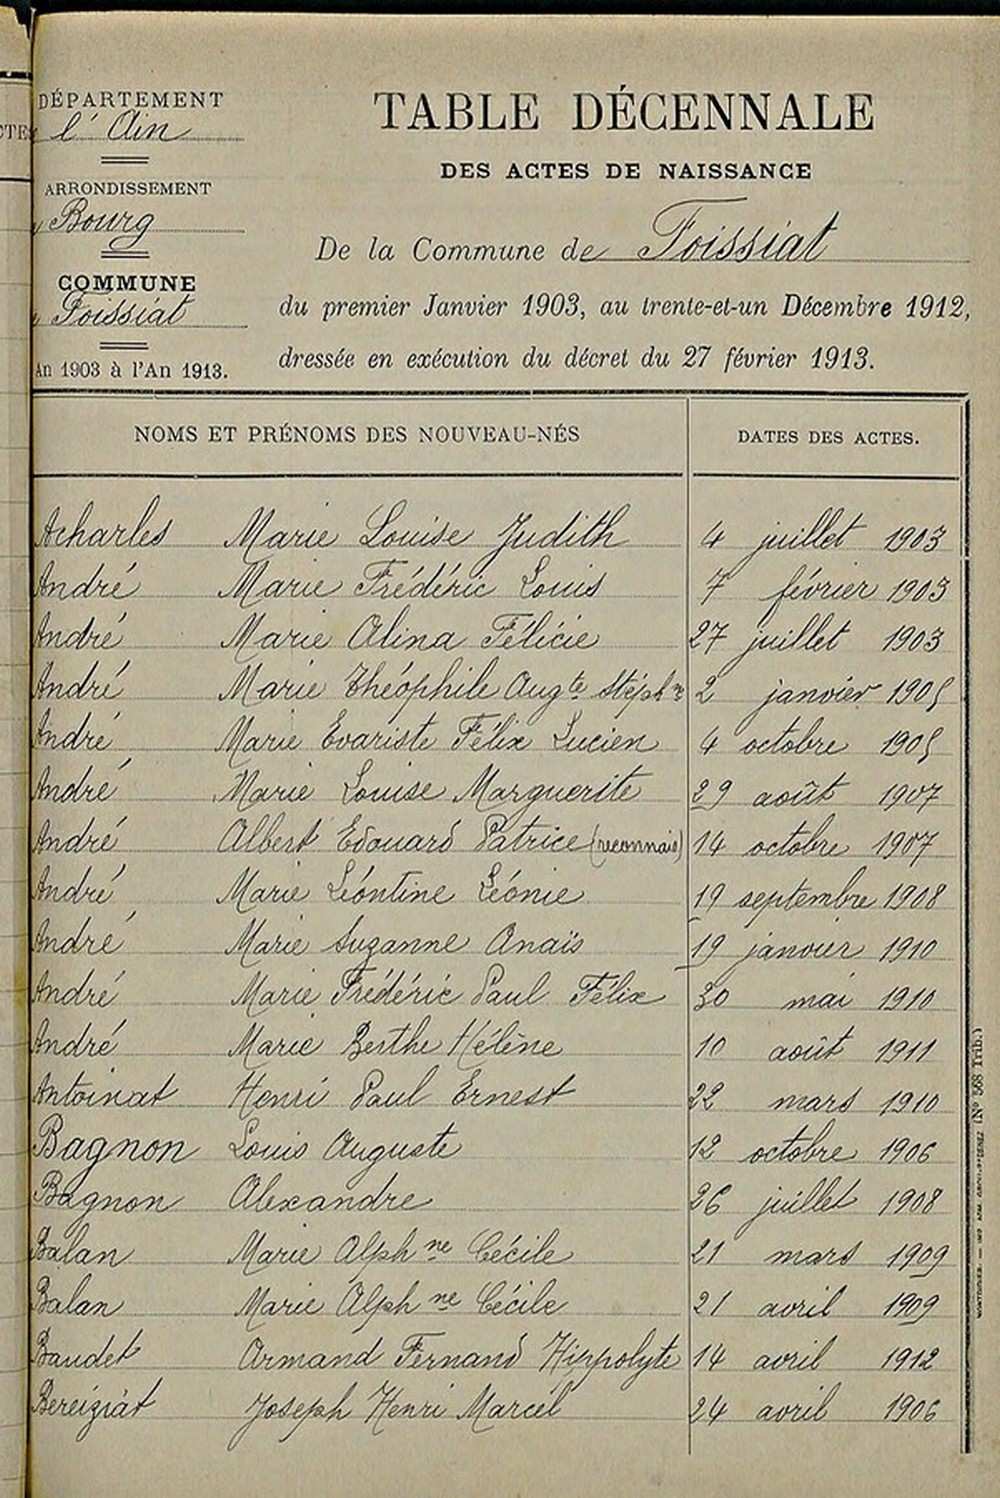 DÉPARTEMENT
l'Ain
ARRONDISSEMENT
Bourg
COMMUNE
Foissiat
An 1903 à l'An 1913.
TABLE DÉCENNALE
DES ACTES DE NAISSANCE
De la Commune de Foissiat
du premier Janvier 1903, au trente-et-un Décembre 1912,
dressée en exécution du décret du 27 février 1913.
NOMS ET PRÉNOMS DES NOUVEAU-NÉS DATES DES ACTES.
Acharles Marie Louise Judith 4 juillet 1903
André Marie Frédéric Louis 7 février 1903
André Marie Alina Félicie 27 juillet 1903
André Marie Théophile Augte Stéphne 2 janvier 1905
André Marie Evariste Félix Lucien 4 octobre 1905
André Marie Louise Marguerite 29 août 1907
André Albert Edouard Patrice (reconnais) 14 octobre 1907
André Marie Léontine Léonie 19 septembre 1908
André Marie Suzanne Anaïs 19 janvier 1910
André Marie Frédéric Paul Félix 30 mai 1910
André Marie Berthe Hélène 10 août 1911
Antoinat Henri Paul Ernest 22 mars 1910
Bagnon Louis Auguste 12 octobre 1906
Bagnon Alexandre 26 juillet 1908
Balan Marie Alphne Cécile 21 mars 1909
Balan Marie Alphne Cécile 21 avril 1909
Baudet Armand Fernand Hippolyte 14 avril 1912
Bereiziat Joseph Henri Marcel 24 avril 1906
(No 568 Trib.)